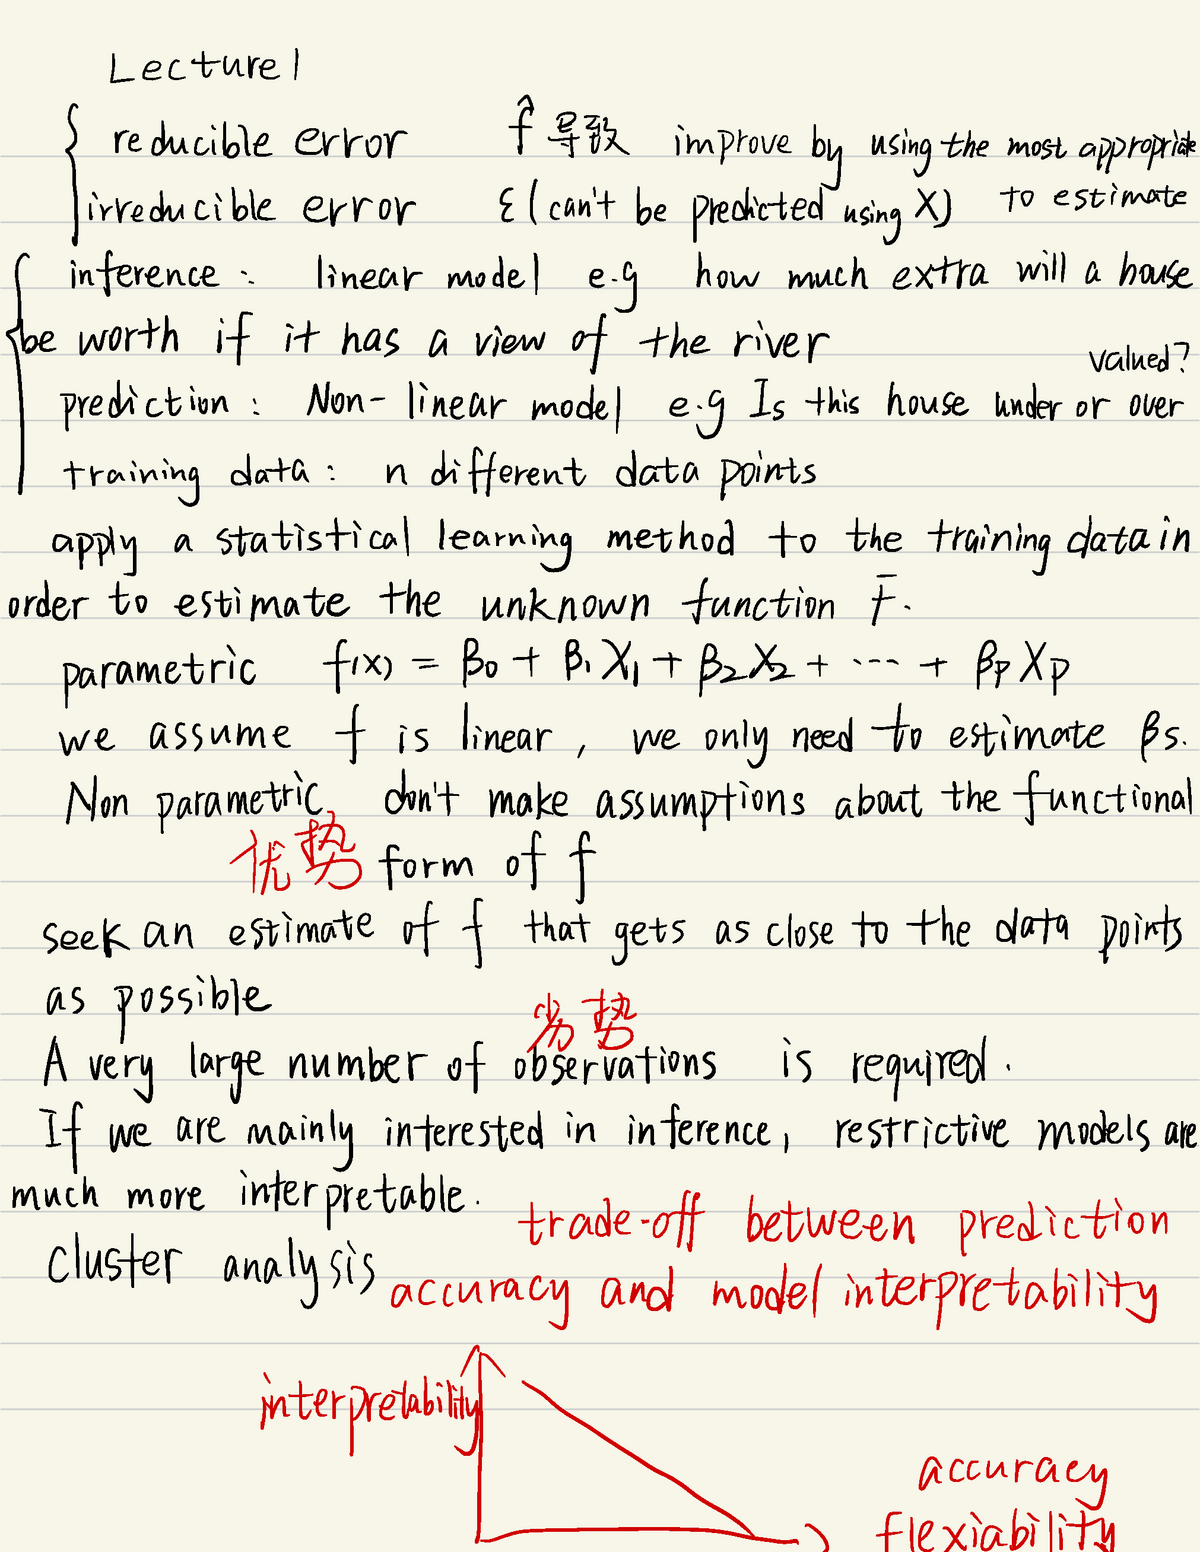 Lecture 1
reducible error f̂ 导致 improve by using the most appropriate
irreducible error ε (can't be predicted using X) to estimate
inference : linear model e.g how much extra will a house
be worth if it has a view of the river
valued?
prediction : Non-linear model e.g Is this house under or over
training data : n different data points
apply a statistical learning method to the training data in
order to estimate the unknown function f̄.
parametric f(x) = β0 + β1X1 + β2X2 + ... + βpXp
we assume f is linear, we only need to estimate βs.
Non parametric, don't make assumptions about the functional
优势 form of f
seek an estimate of f that gets as close to the data points
as possible
劣势
A very large number of observations is required.
If we are mainly interested in inference, restrictive models are
much more interpretable.
trade-off between prediction
cluster analysis
accuracy and model interpretability
interpretability
accuracy
flexiability